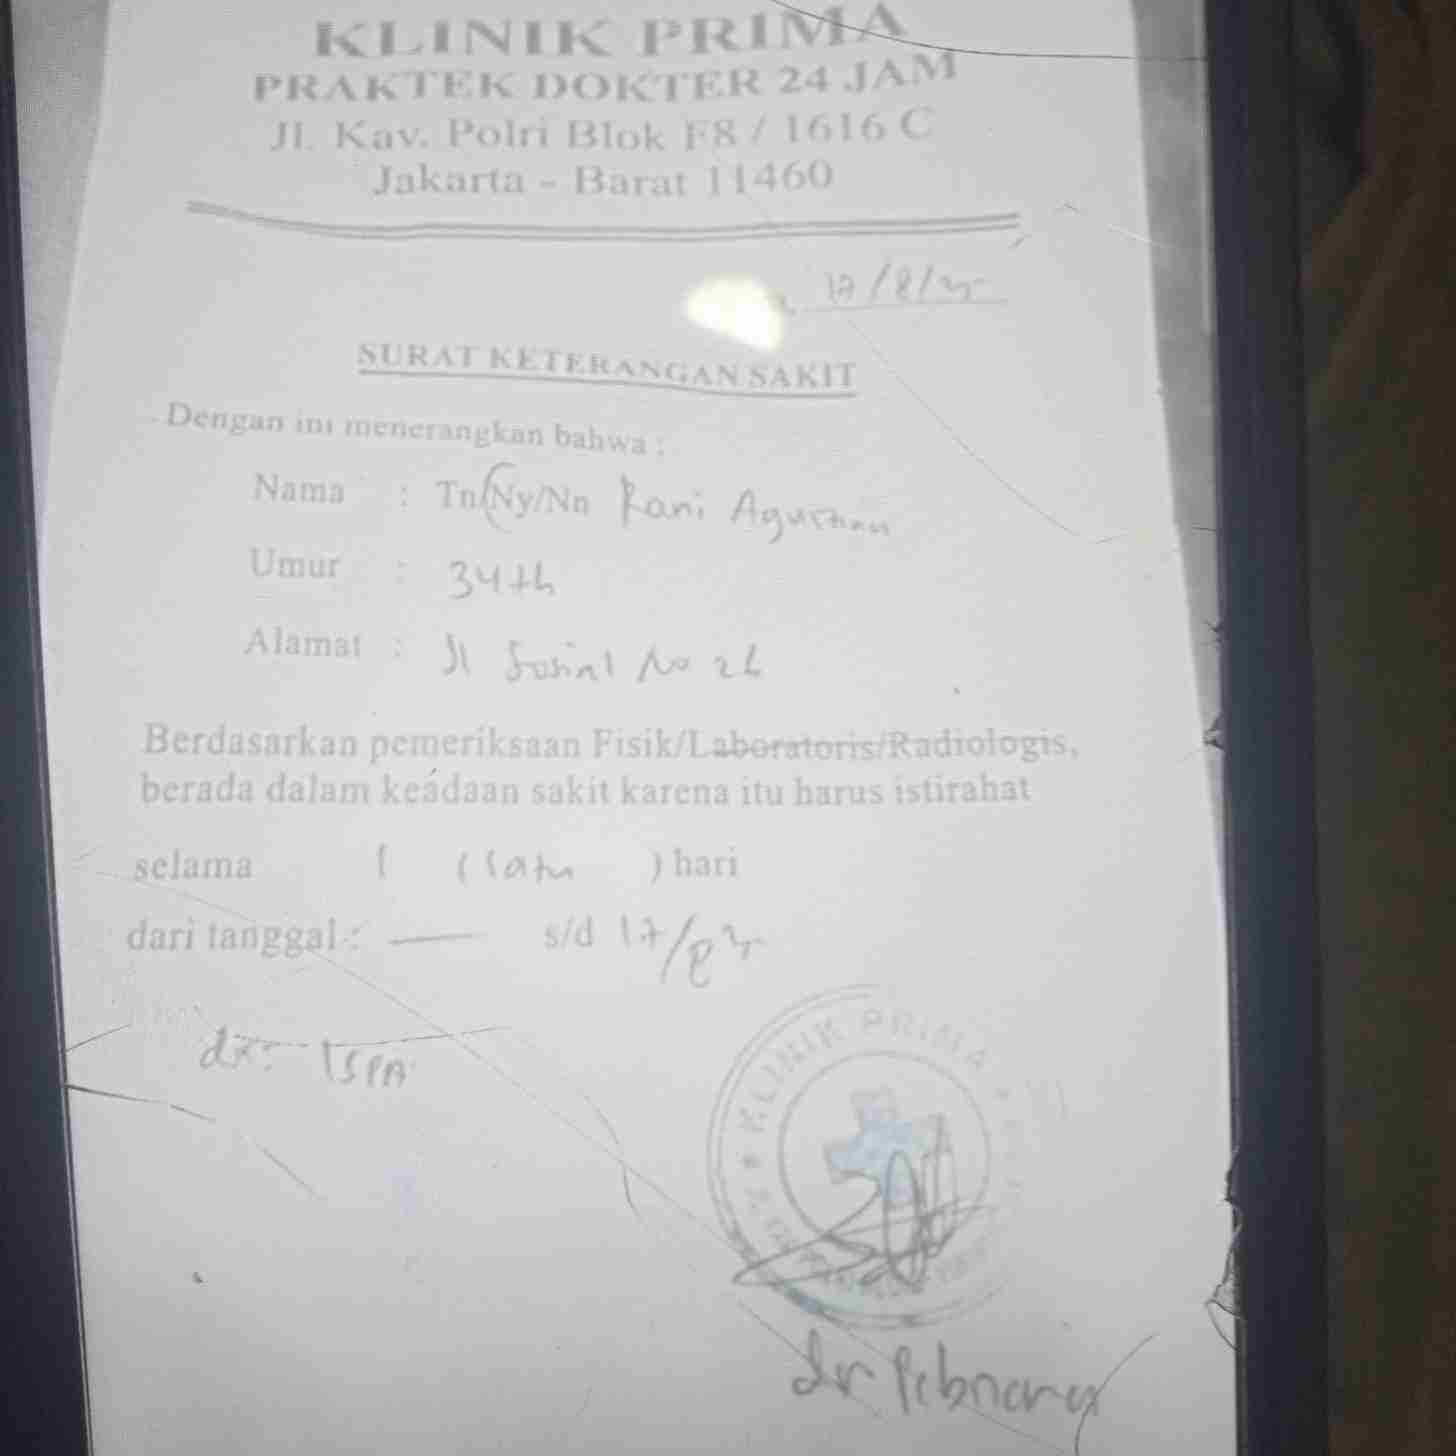 KLINIK PRIMA
PRAKTEK DOKTER 24 JAM
Jl. Kav. Polri Blok F8 / 1616 C
Jakarta - Barat 11460
SURAT KETERANGAN SAKIT
Dengan ini menerangkan bahwa :
Nama : Tn/Ny/Nn Rani
Umur : 34th
Alamat : Jl Sosial No
Berdasarkan pemeriksaan Fisik/Laboratoris/Radiologis,
berada dalam keadaan sakit karena itu harus istirahat
selama 1 (satu ) hari
dari tanggal : — s/d 17/8
dx: ISPA
KLINIK PRIMA
dr